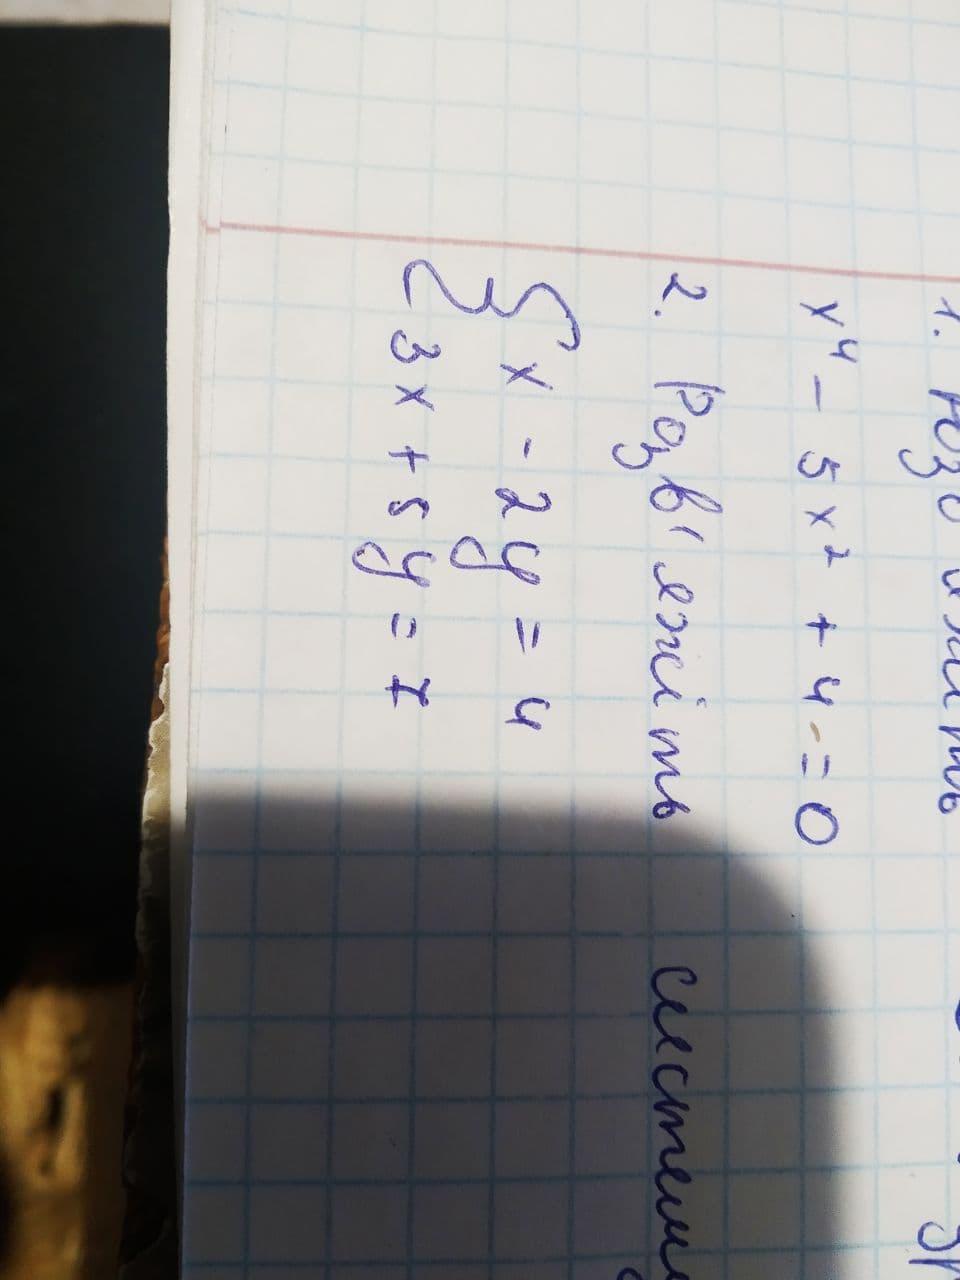 1. Розв'яжіть
x⁴ - 5x² + 4 = 0
2. Розв'яжіть систему
{ x - 2y = 4
3x + 5y = 7